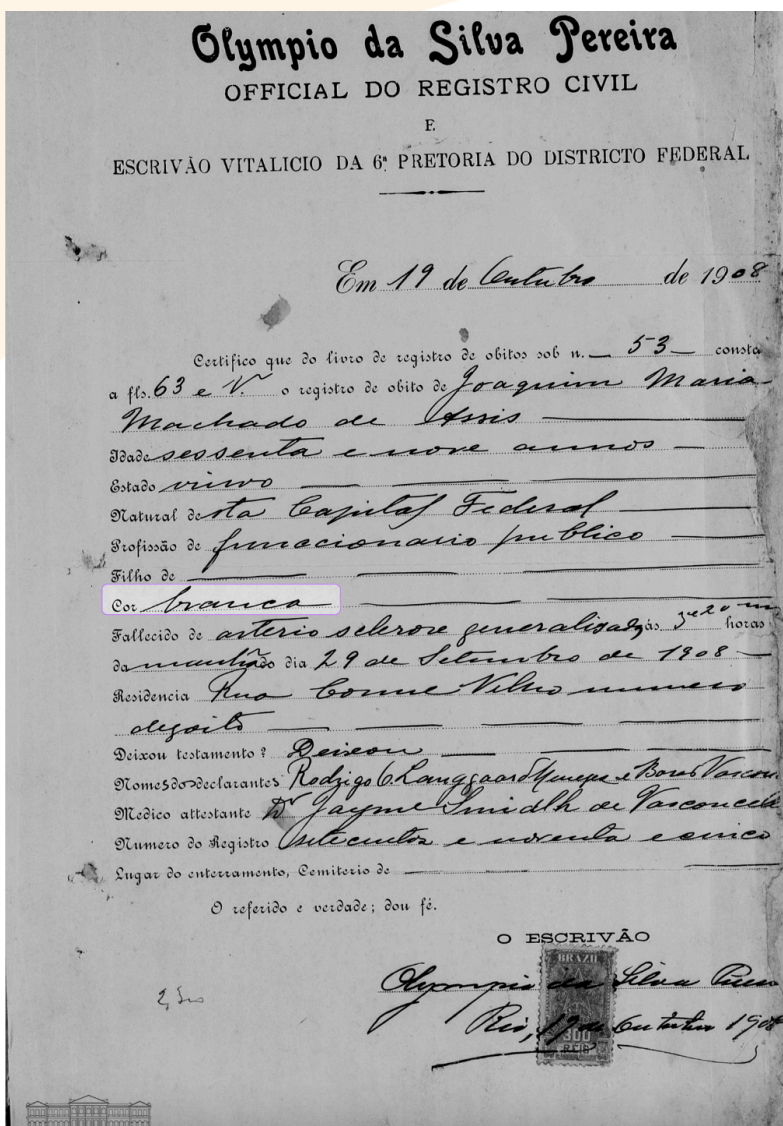 Olympio da Silva Pereira
OFFICIAL DO REGISTRO CIVIL
E
ESCRIVÃO VITALICIO DA 6ª PRETORIA DO DISTRICTO FEDERAL
Em 19 de Outubro de 1908
Certifico que do livro de registro de obitos sob n. 53 consta
a fls. 63 e V. o registro de obito de Joaquim Maria
Machado de Assis
Idade sessenta e nove annos
Estado viuvo
Natural desta Capital Federal
Profissão de funccionario publico
Filho de
Cor branca
Fallecido de arterio sclerose generalisada ás 3 e 20 m horas
da manhã do dia 29 de Setembro de 1908
Residencia Rua Cosme Velho numero
dezoito
Deixou testamento? Deixou
Nomes do declarantes Rodrigo Langgaard Menezes e
Medico attestante Dr Jayme Smidth de Vasconcell
Numero do Registro setecentos e noventa e cinco
Lugar do enterramento, Cemiterio de
O referido e verdade; dou fé.
O ESCRIVÃO
BRAZIL
Olympio da Silva
Rio, 19 de Outubro 1908
300
REIS